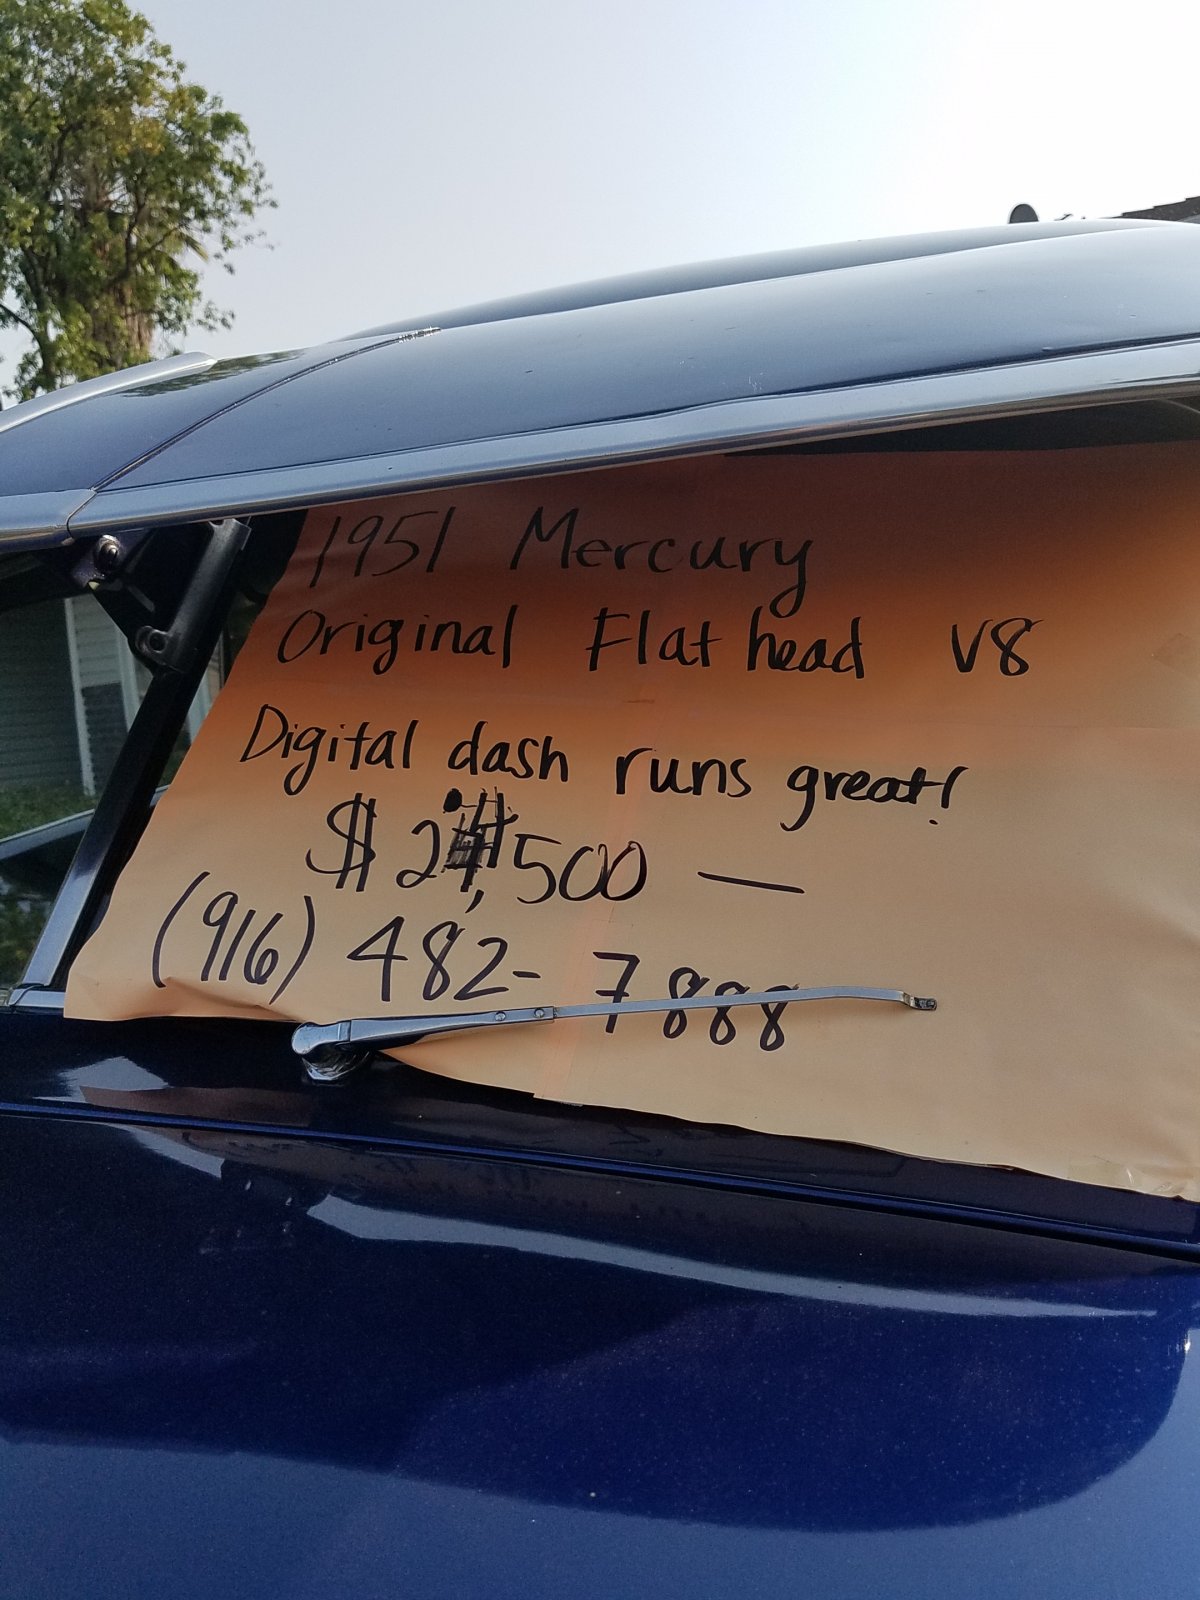 1951 Mercury
Original Flat head V8
Digital dash runs great!
$24,500 —
(916) 482-7888